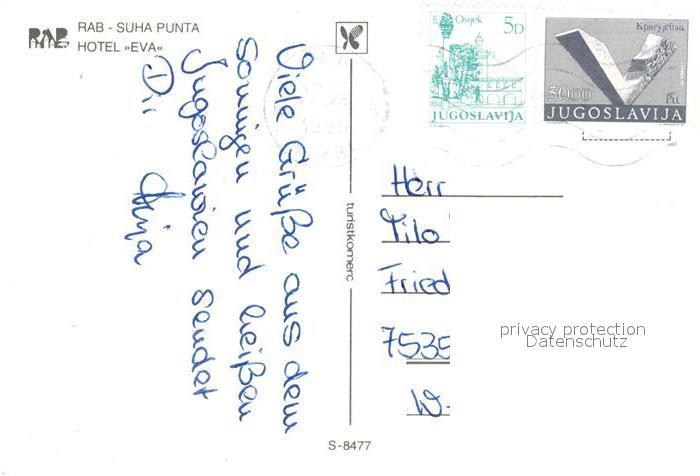 RAB RAB - SUHA PUNTA
HOTEL »EVA«
Viele Grüße aus dem
sonnigen und heißen
Jugoslawien sendet
Dir Anja
turistkomerc
S-8477
Osijek
5D
JUGOSLAVIJA
5000
JUGOSLAVIJA
Herr
Tilo
Fried
7535
W-
privacy protection
Datenschutz